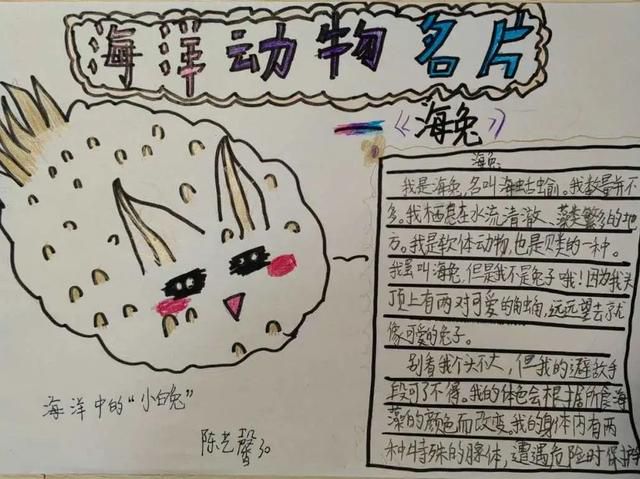 海洋动物名片
《海兔》
海兔
我是海兔,名叫海蛞蝓。我数量并不
多。我栖息在水流清澈、藻类繁多的地
方。我是软体动物,也是贝类的一种。
我虽叫海兔,但是我不是兔子哦!因为我头
顶上有两对可爱的触角,远远望去就
像可爱的兔子。
别看我个头不大,但我的避敌手
段可了不得。我的体色会根据所食海
藻的颜色而改变。我的身体内有两
种特殊的腺体,遭遇危险时保护
海洋中的"小白兔"
陈艺馨30